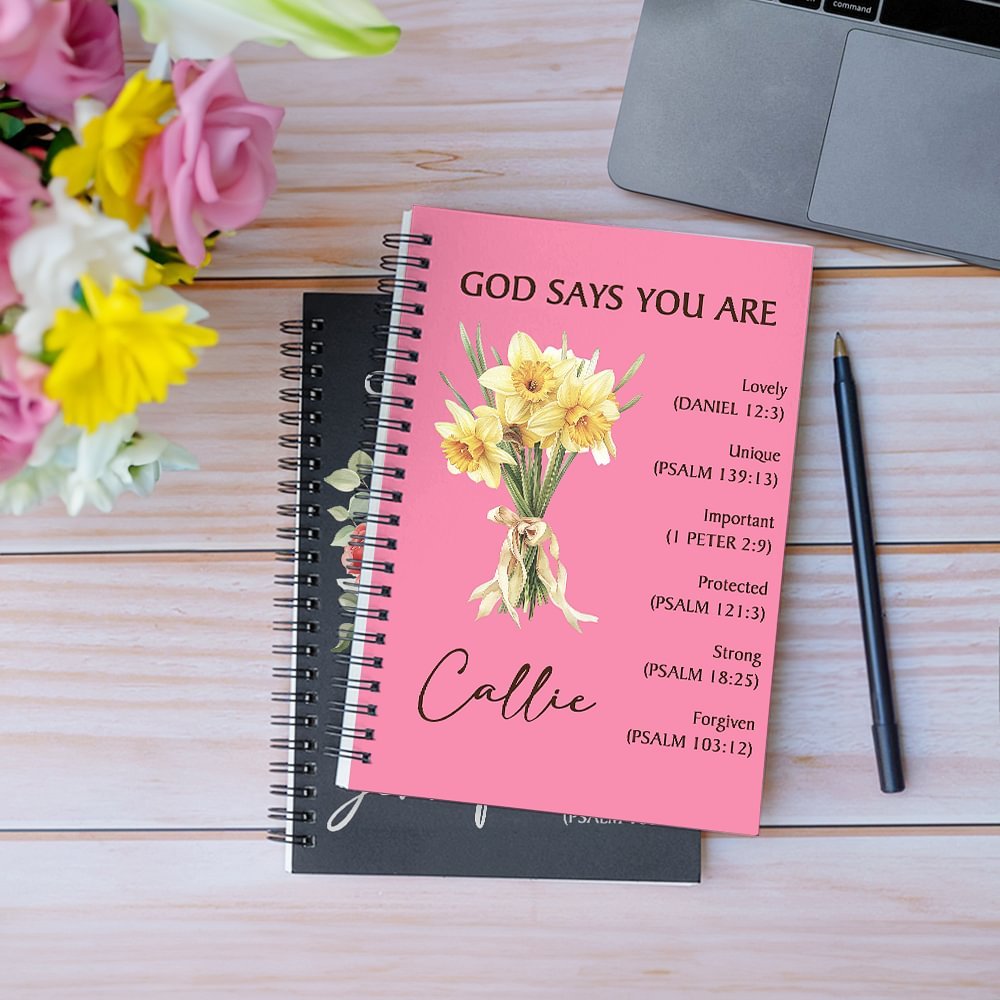 command
GOD SAYS YOU ARE
Lovely
(DANIEL 12:3)
Unique
(PSALM 139:13)
Important
(1 PETER 2:9)
Protected
(PSALM 121:3)
Strong
(PSALM 18:25)
Forgiven
(PSALM 103:12)
Callie
(PSALM